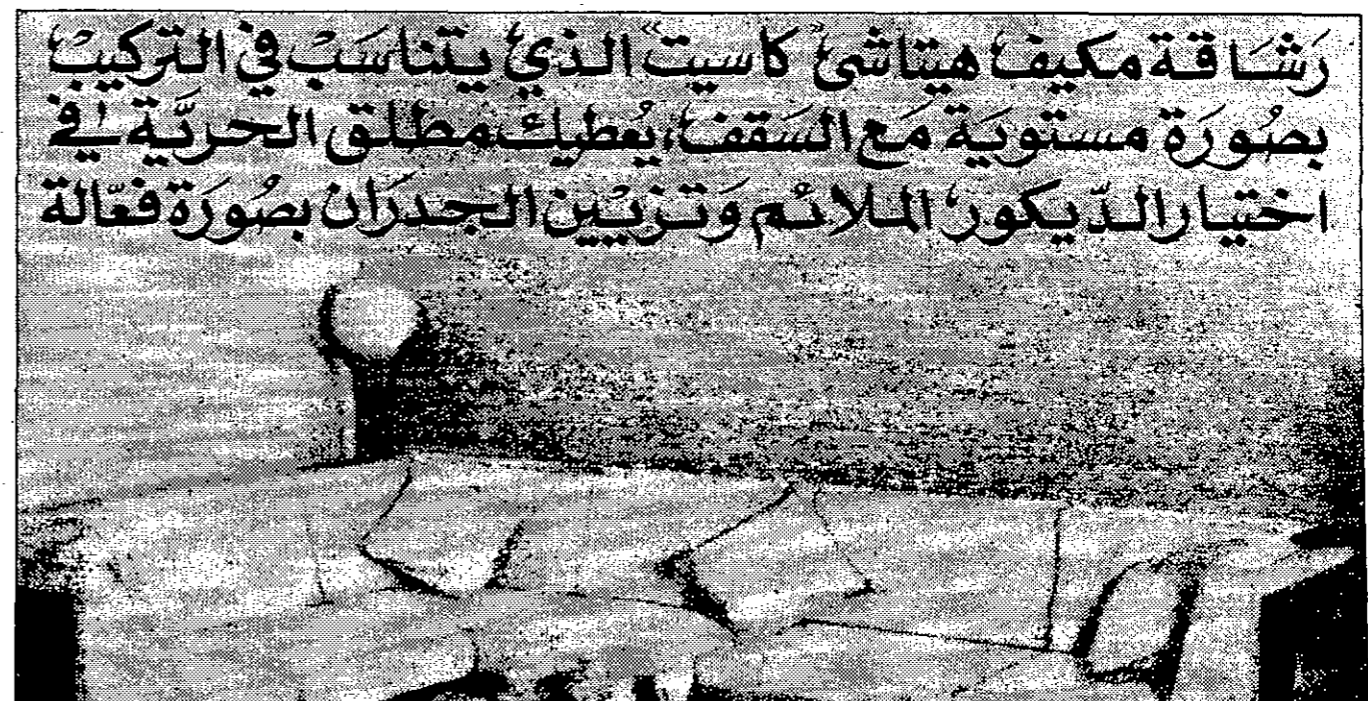 رَشَاقة مكيف هيتاشي "كاسيت" الذي يتناسَب في التركيب
بصُورَة مستويَة مَع السَقف، يُعطيك مطلق الحريَّة في
اختيار الدّيكور الملائم وَتزيين الجدرَان بصُورَة فعّالة